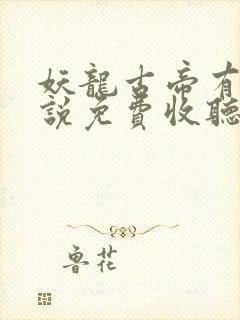 妖龍古帝有
說免費收聽
魯花